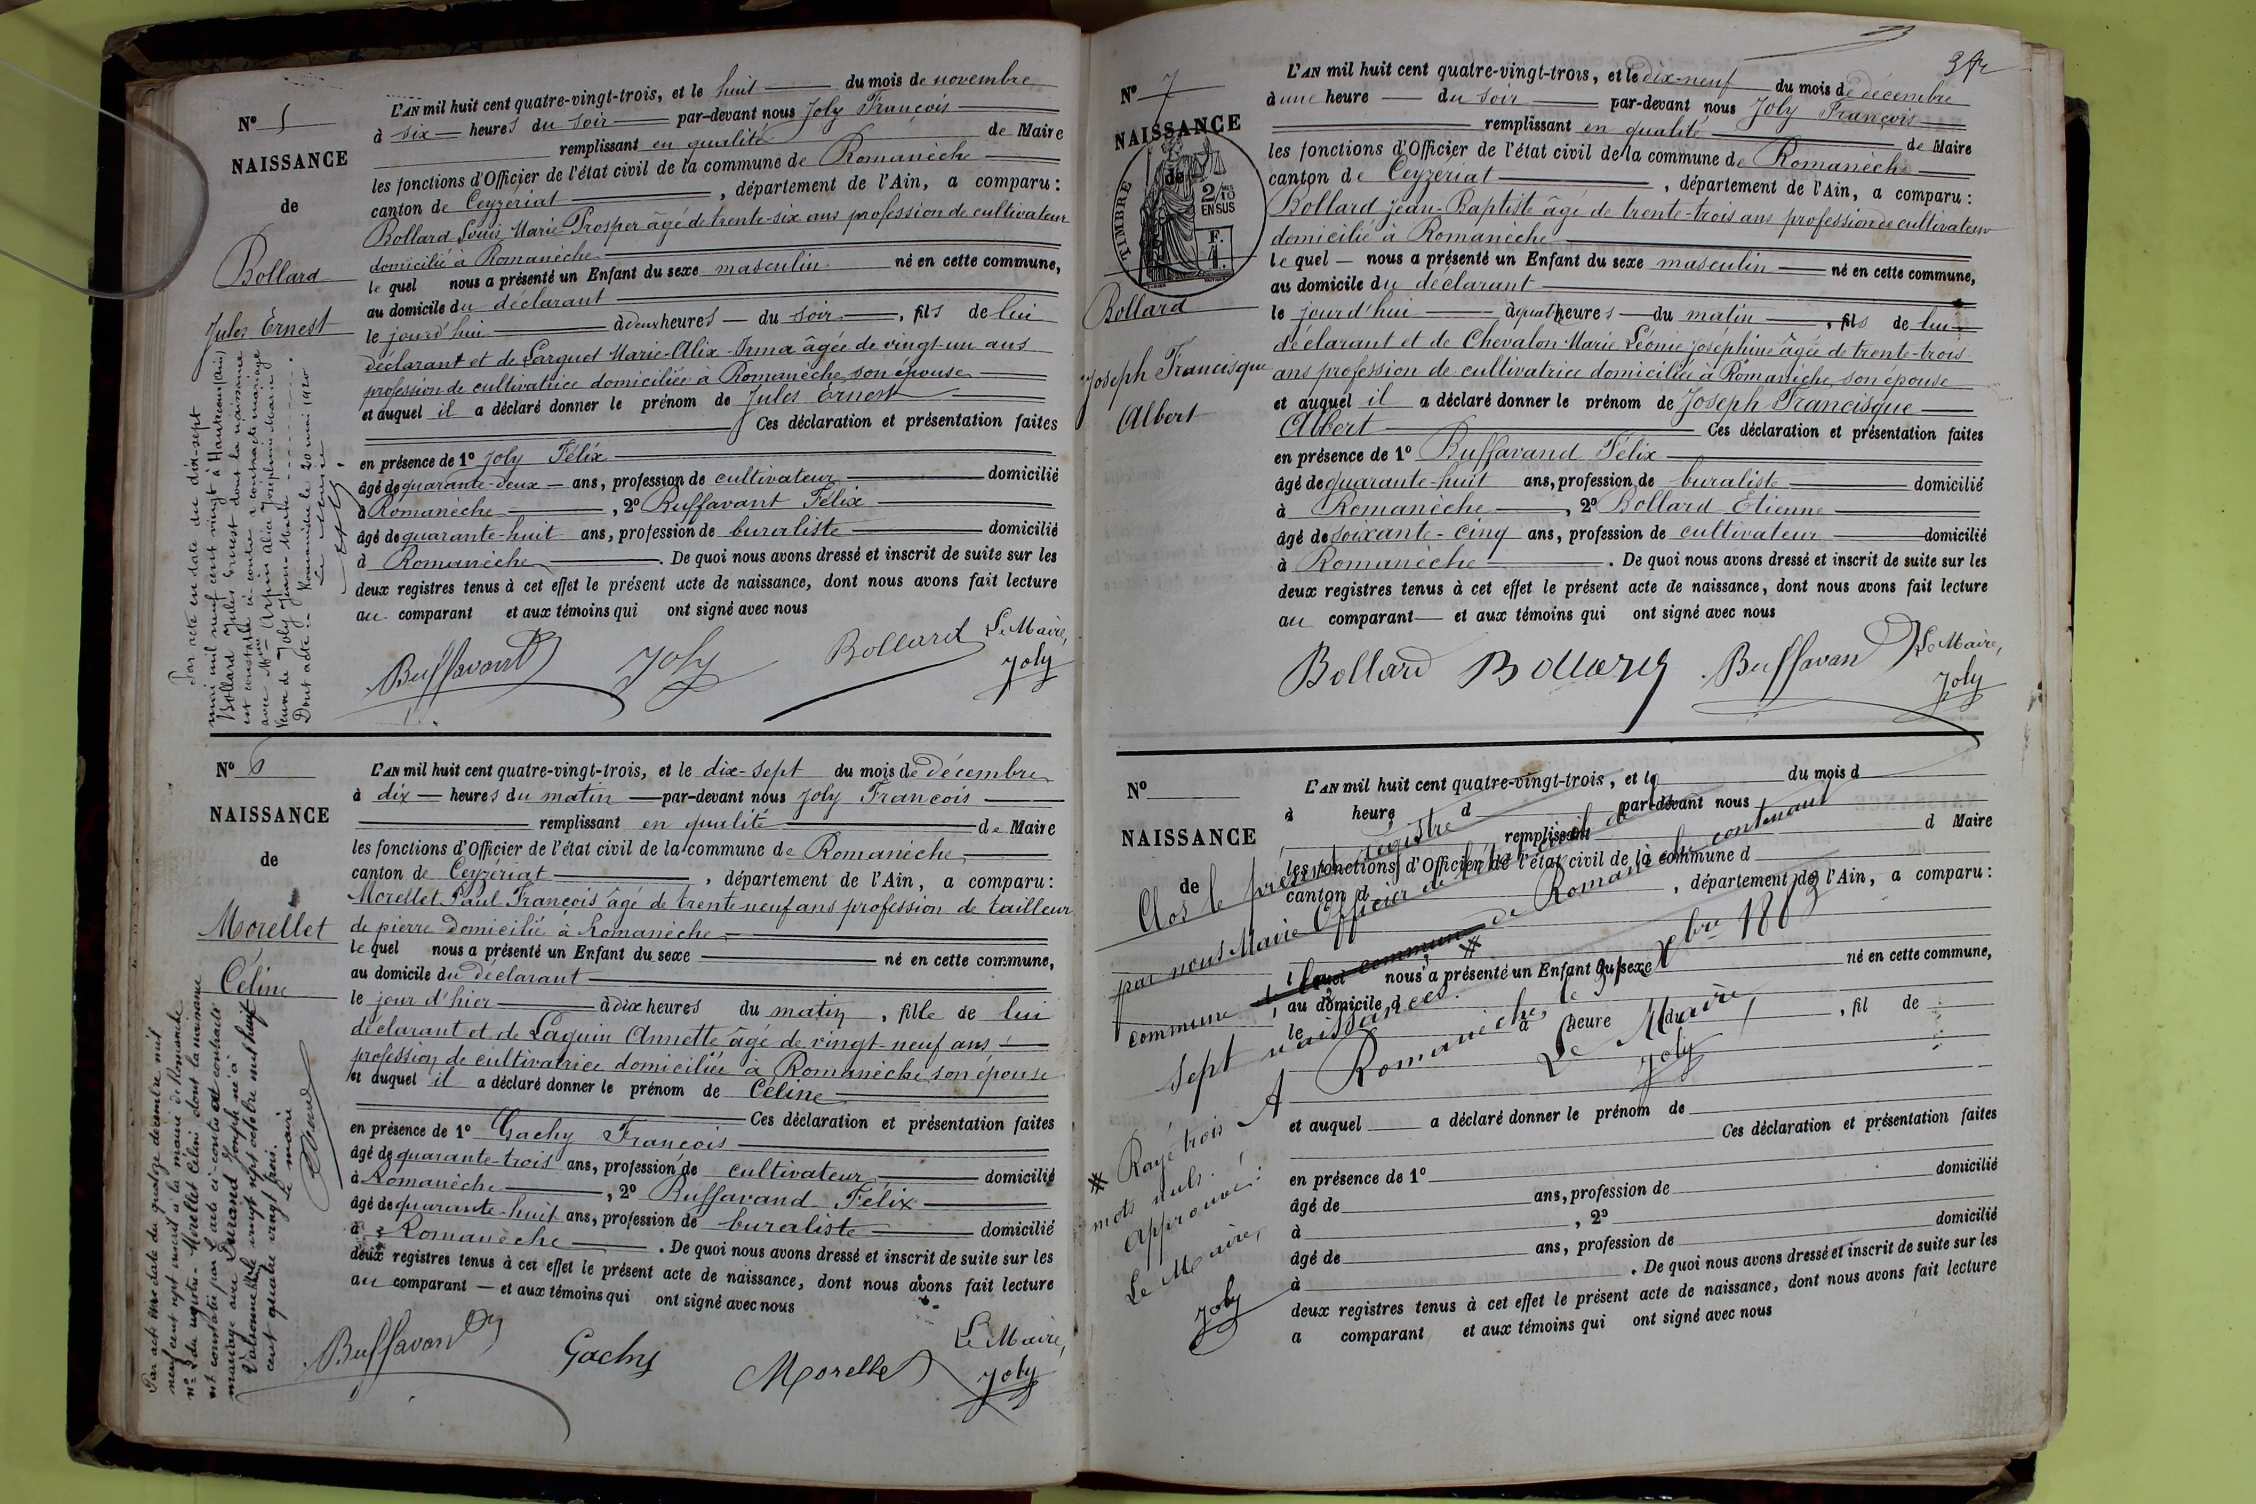 N° 5
NAISSANCE
de
Bollard
Jules Ernest
L'AN mil huit cent quatre-vingt-trois, et le huit du mois de novembre
à six heures du soir par-devant nous Joly François
remplissant en qualité de Maire
les fonctions d'Officier de l'état civil de la commune de Romanèche
canton de Ceyzériat, département de l'Ain, a comparu:
Bollard Louis Marie Prosper âgé de trente-six ans profession de cultivateur
domicilié à Romanèche
le quel nous a présenté un Enfant du sexe masculin né en cette commune,
au domicile du déclarant
le jourd'hui à deux heures du soir, fils de lui
déclarant et de Larguet Marie-Alix-Irma âgée de vingt-un ans
profession de cultivatrice domiciliée à Romanèche, son épouse
et auquel il a déclaré donner le prénom de Jules Ernest
Ces déclaration et présentation faites
en présence de 1° Joly Félix
âgé de quarante-deux ans, profession de cultivateur domicilié
à Romanèche, 2° Buffavant Félix
âgé de quarante-huit ans, profession de buraliste domicilié
à Romanèche. De quoi nous avons dressé et inscrit de suite sur les
deux registres tenus à cet effet le présent acte de naissance, dont nous avons fait lecture
au comparant et aux témoins qui ont signé avec nous
Buffavant Joly Bollard Le Maire,
Joly
Par acte en date du dix-sept
mai mil neuf cent vingt à Hautecour (Ain)
Bollard Jules Ernest dont la naissance
est constatée ci-contre a contracté mariage
avec Mme Arpin Alix Joséphine Marie
veuve de Joly Jean Marie
Dont acte Romanèche le 20 mai 1920
Le Maire
N° 6
NAISSANCE
de
Morellet
Céline
L'AN mil huit cent quatre-vingt-trois, et le dix-sept du mois de décembre
à dix heures du matin par-devant nous Joly François
remplissant en qualité de Maire
les fonctions d'Officier de l'état civil de la commune de Romanèche
canton de Ceyzériat, département de l'Ain, a comparu:
Morellet Paul François âgé de trente neuf ans profession de tailleur
de pierre domicilié à Romanèche
le quel nous a présenté un Enfant du sexe né en cette commune,
au domicile du déclarant
le jour d'hier à dix heures du matin, fille de lui
déclarant et de Laguin Annette âgé de vingt-neuf ans
profession de cultivatrice domiciliée à Romanèche, son épouse
et auquel il a déclaré donner le prénom de Céline
Ces déclaration et présentation faites
en présence de 1° Gachy François
âgé de quarante-trois ans, profession de cultivateur domicilié
à Romanèche, 2° Buffavand Félix
âgé de quarante-huit ans, profession de buraliste domicilié
à Romanèche. De quoi nous avons dressé et inscrit de suite sur les
deux registres tenus à cet effet le présent acte de naissance, dont nous avons fait lecture
au comparant et aux témoins qui ont signé avec nous
Buffavand Gachy Morellet Le Maire,
Joly
Par acte en date du quatorze décembre mil
neuf cent sept inscrit à la mairie de Romanèche
n° 2 du registre. Morellet Céline dont la naissance
est constatée par l'acte ci-contre a contracté
mariage avec Durand Joseph né à
Valsonne le vingt sept octobre mil huit
cent quatre vingt trois.
Le maire
3 fr
N° 7
NAISSANCE
de
TIMBRE
2/10 EN SUS
F. 1.
Bollard
Joseph Francisque
Albert
L'AN mil huit cent quatre-vingt-trois, et le dix-neuf du mois de décembre
à une heure du soir par-devant nous Joly François
remplissant en qualité de Maire
les fonctions d'Officier de l'état civil de la commune de Romanèche
canton de Ceyzériat, département de l'Ain, a comparu:
Bollard Jean-Baptiste âgé de trente-trois ans profession de cultivateur
domicilié à Romanèche
le quel nous a présenté un Enfant du sexe masculin né en cette commune,
au domicile du déclarant
le jourd'hui à quatre heures du matin, fils de lui
déclarant et de Chevalon Marie Léonie Joséphine âgée de trente-trois
ans profession de cultivatrice domiciliée à Romanèche, son épouse
et auquel il a déclaré donner le prénom de Joseph Francisque
Albert Ces déclaration et présentation faites
en présence de 1° Buffavand Félix
âgé de quarante-huit ans, profession de buraliste domicilié
à Romanèche, 2° Bollard Etienne
âgé de soixante-cinq ans, profession de cultivateur domicilié
à Romanèche. De quoi nous avons dressé et inscrit de suite sur les
deux registres tenus à cet effet le présent acte de naissance, dont nous avons fait lecture
au comparant et aux témoins qui ont signé avec nous
Bollard Bollard Buffavand Le Maire,
Joly
N°
NAISSANCE
de
L'AN mil huit cent quatre-vingt-trois, et le du mois d
à heure d par-devant nous
remplissant d Maire
les fonctions d'Officier de l'état civil de la commune d
canton d, département de l'Ain, a comparu:
l quel nous a présenté un Enfant du sexe né en cette commune,
au domicile d
le à heure du, fil de
et auquel a déclaré donner le prénom de
Ces déclaration et présentation faites
en présence de 1°
âgé de ans, profession de domicilié
à, 2°
âgé de ans, profession de domicilié
à. De quoi nous avons dressé et inscrit de suite sur les
deux registres tenus à cet effet le présent acte de naissance, dont nous avons fait lecture
a comparant et aux témoins qui ont signé avec nous
Clos le présent registre
par nous Maire Officier de l'état civil de la
commune de Romanèche contenant
sept naissances.
A Romanèche, le 31 Xbre 1883
Le Maire,
Joly
# Rayé trois
mots nuls.
Approuvé:
Le Maire,
Joly